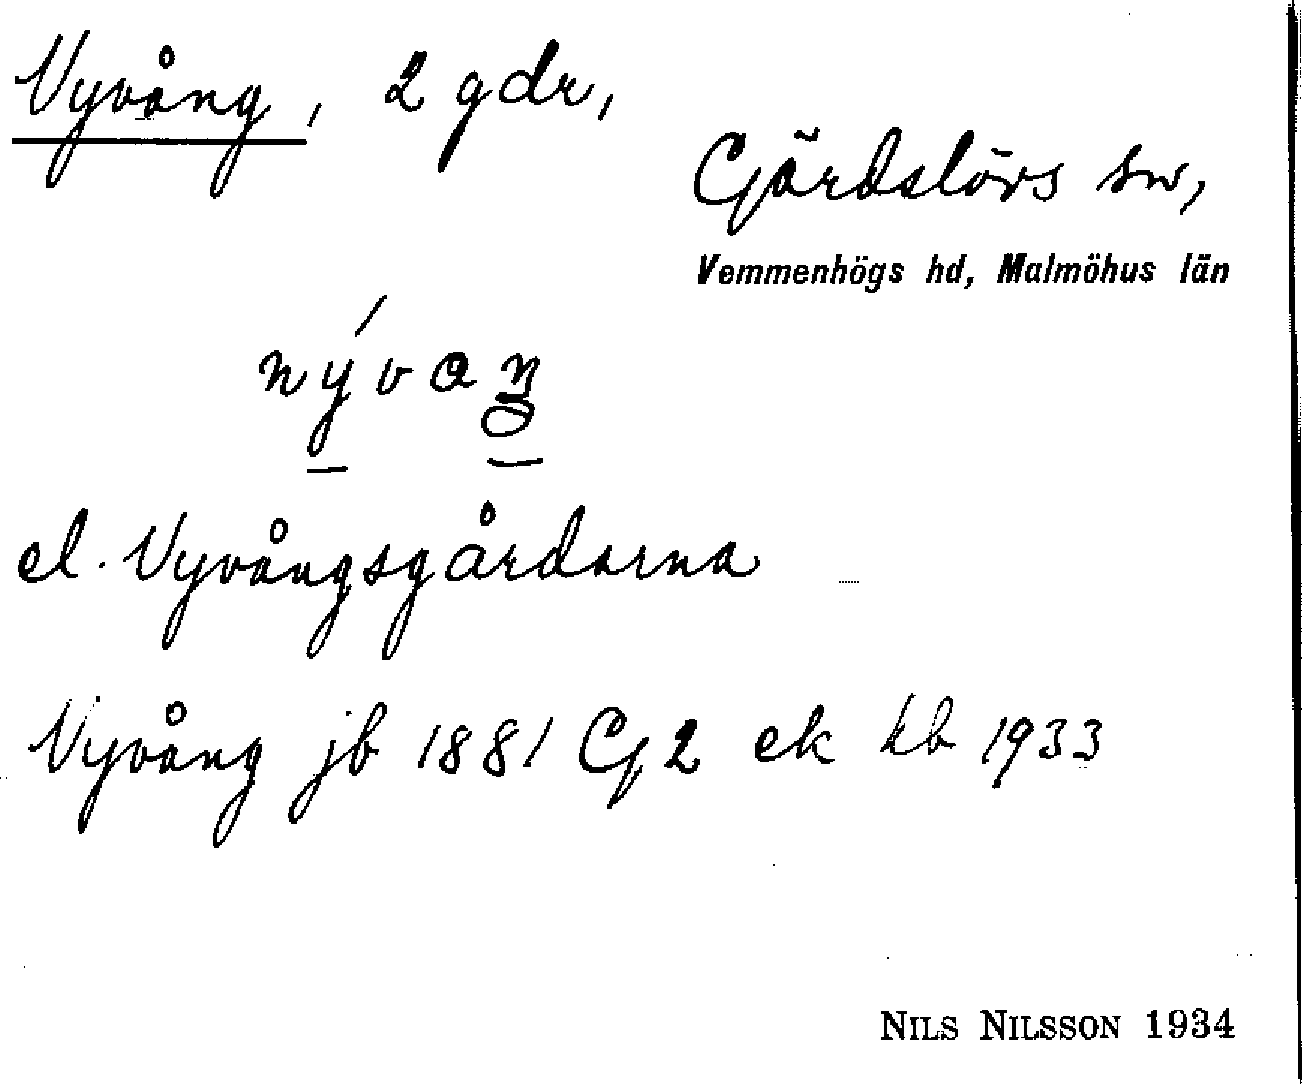 Vyvång, 2 gdr,
Gärdslövs sn,
Vemmenhögs hd, Malmöhus län
el. Vyvångsgårdarna
Vyvång jb 1881 Cf 2 ek kb 1933
NILS NILSSON 1934